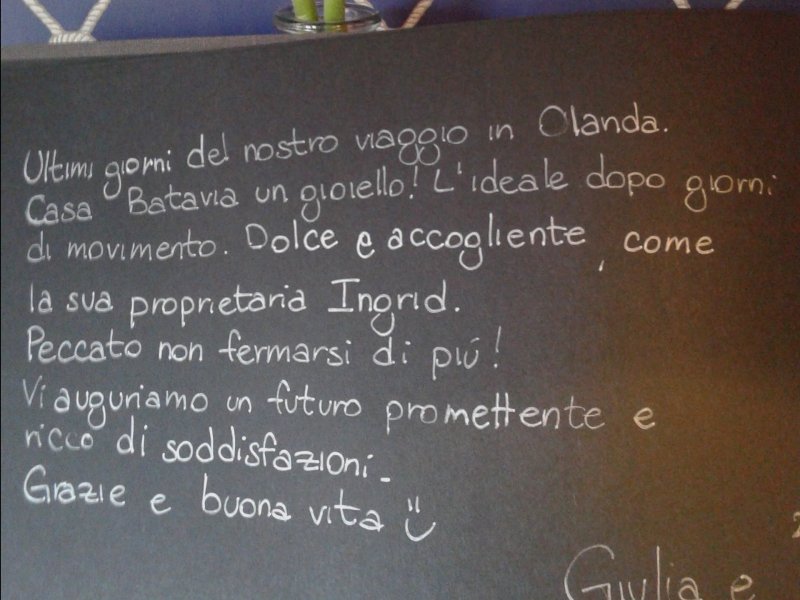 Ultimi giorni del nostro viaggio in Olanda.
Casa Batavia un gioiello! L'ideale dopo giorni
di movimento. Dolce e accogliente, come
la sua proprietaria Ingrid.
Peccato non fermarsi di piú!
Vi auguriamo un futuro promettente e
ricco di soddisfazioni.
Grazie e buona vita Ü
Giulia e